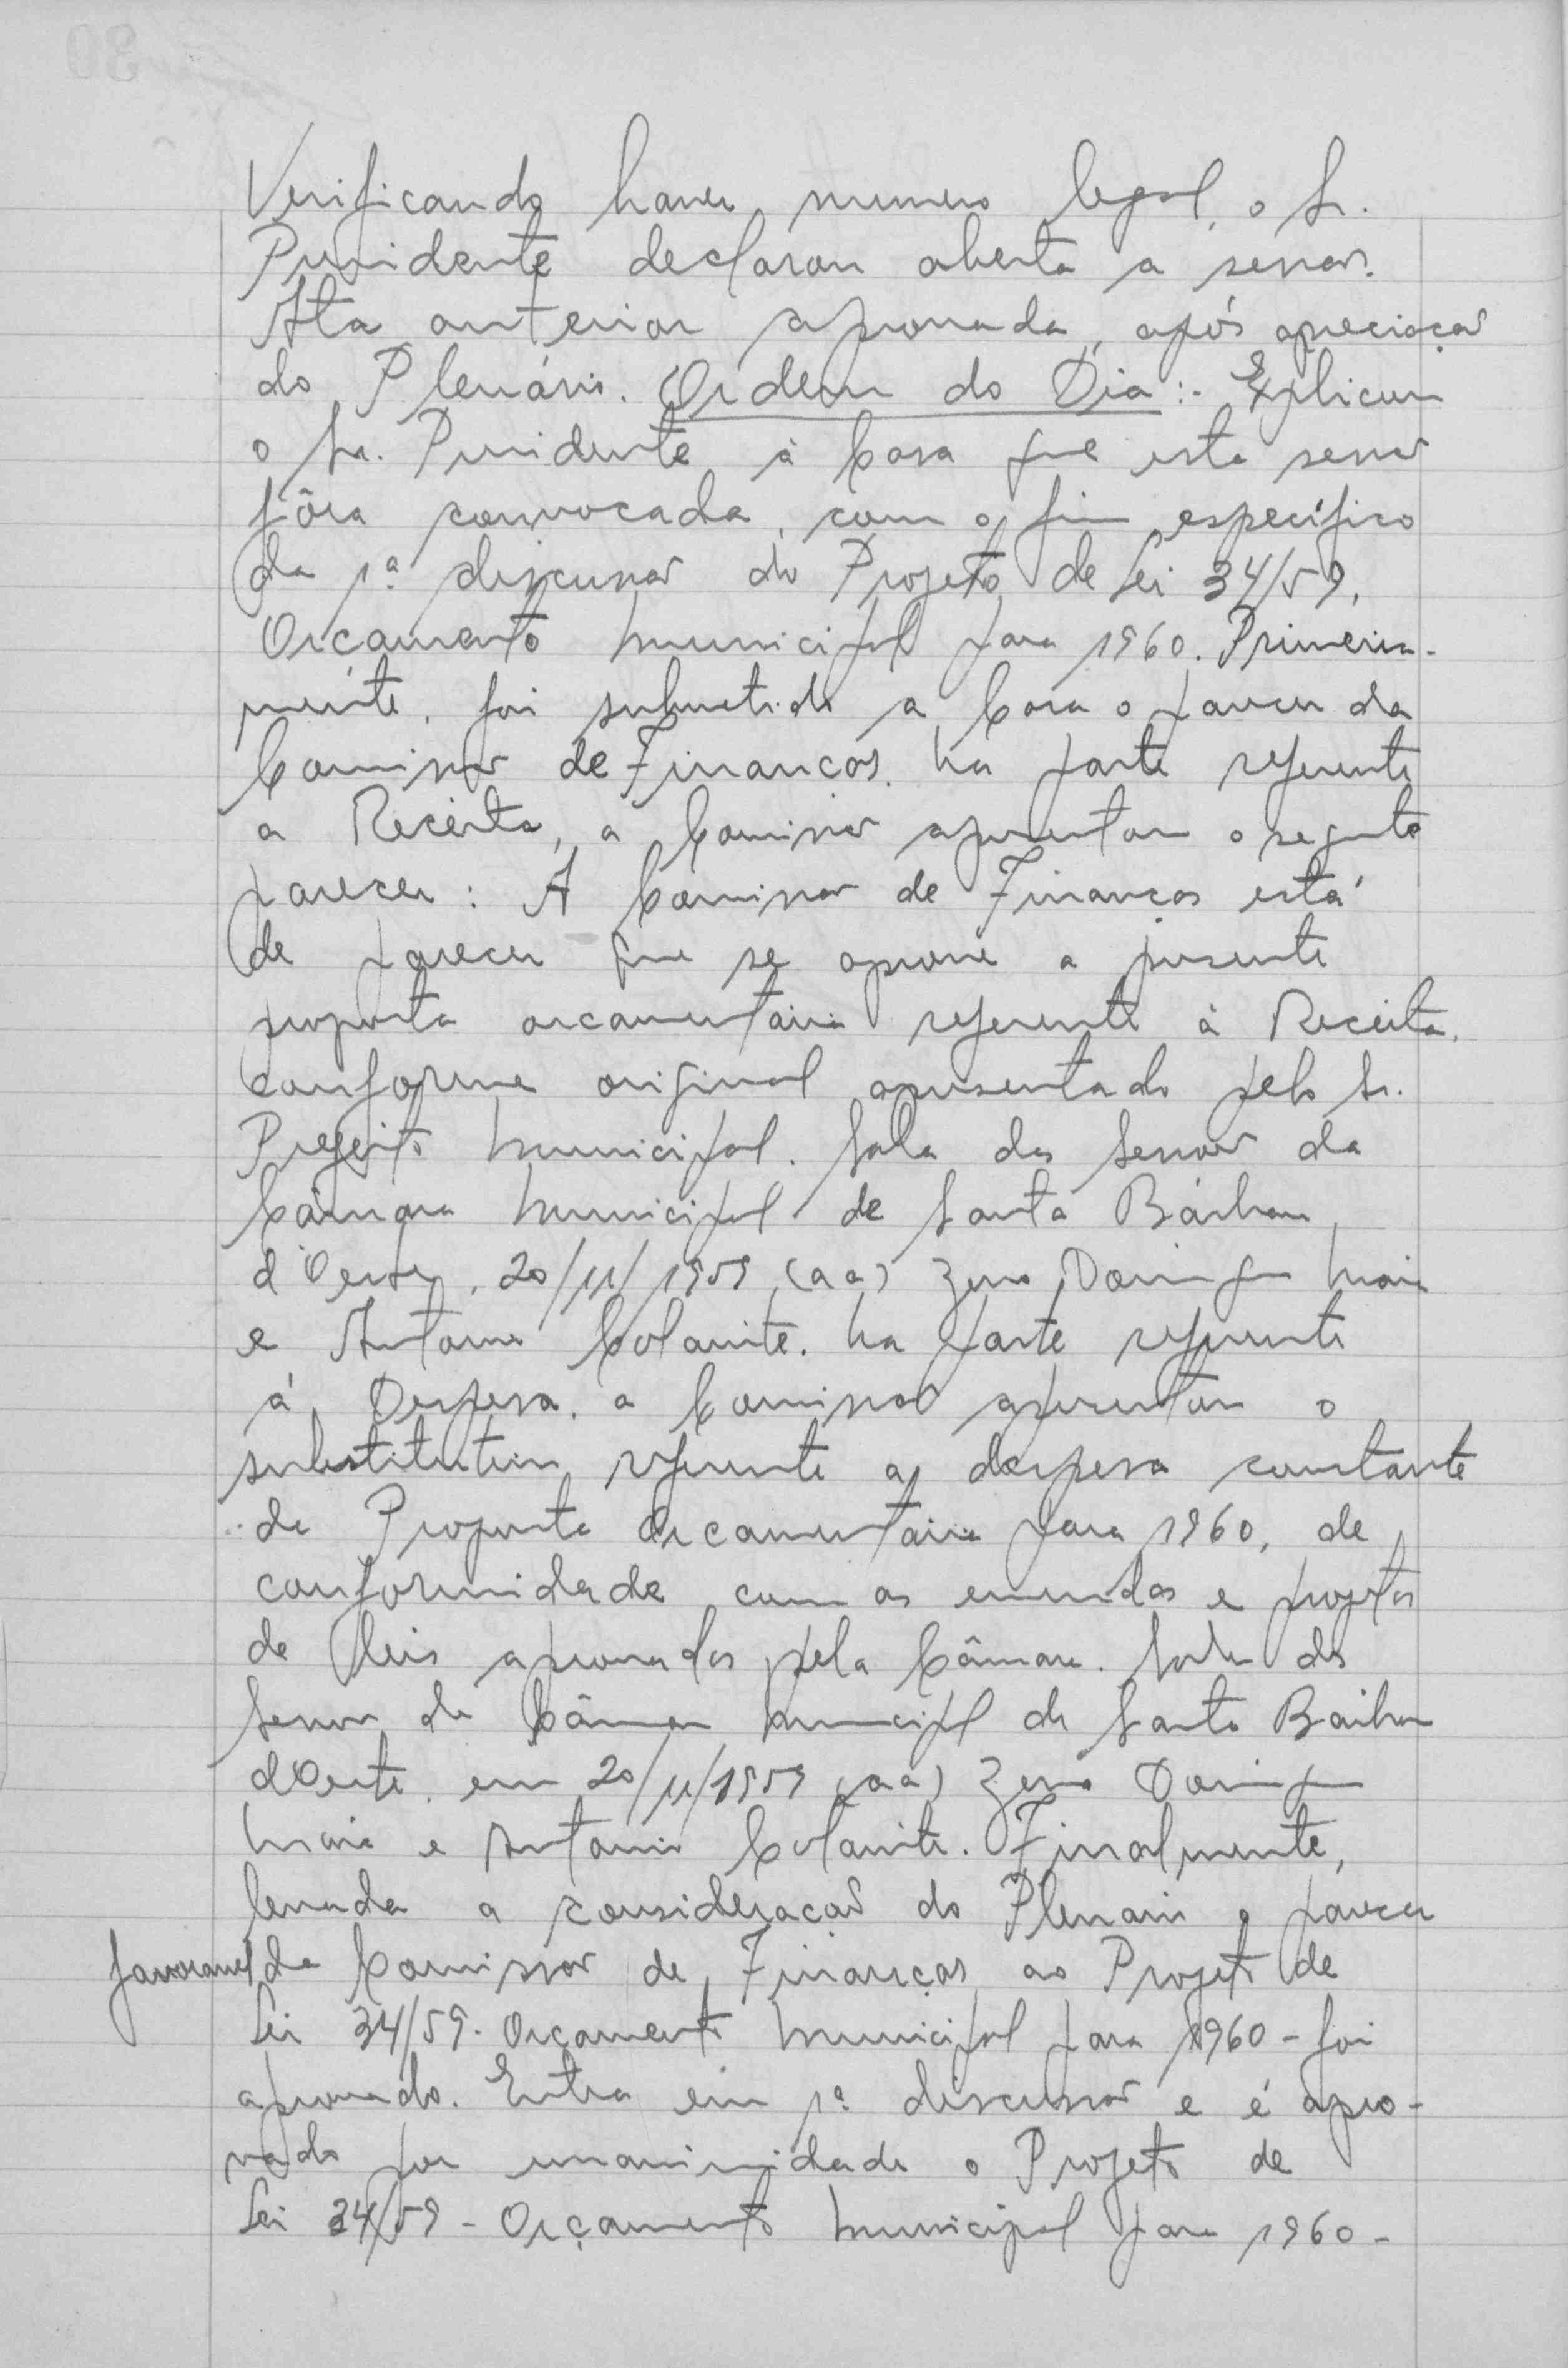 Verificando haver numero legal, o Sr.
Presidente declarou aberta a sessão.
Ata anterior aprovada, após apreciação
do Plenário. Ordem do Dia:- Explicou
o Sr. Presidente à Casa que esta sessão
fôra convocada, com o fim específico
da 1ª discussão do Projeto de Lei 34/59,
Orçamento Municipal para 1960. Primeira-
mente, foi submetido a Casa o parecer da
Comissão de Finanças. Na parte referente
a Receita, a Comissão apresentou o seguinte
parecer: A Comissão de Finanças está
de parecer que se aprove a presente
proposta orçamentária referente à Receita,
conforme original apresentado pelo Sr.
Prefeito Municipal. Sala das Sessões da
Câmara Municipal de Santa Bárbara
d'Oeste, 20/11/1959 (aa) Zeno Domingues Maia
e Antonio Colanite. Na parte referente
à Despesa, a Comissão apresentou o
substitutivo referente a despesa constante
da Proposta Orçamentária para 1960, de
conformidade com as emendas e projetos
de leis aprovados pela Câmara. Sala das
Sessões da Câmara Municipal de Santa Bárbara
dOeste, em 20/11/1959 (aa) Zeno Domingues
Maia e Antonio Colanite. Finalmente,
levada a consideração do Plenário o parecer
favoravel da Comissão de Finanças ao Projeto de
Lei 34/59. Orçamento Municipal para 1960 - foi
aprovado. Entra em 1ª discussão e é apro-
vado por unanimidade o Projeto de
Lei 34/59 - Orçamento Municipal para 1960 -